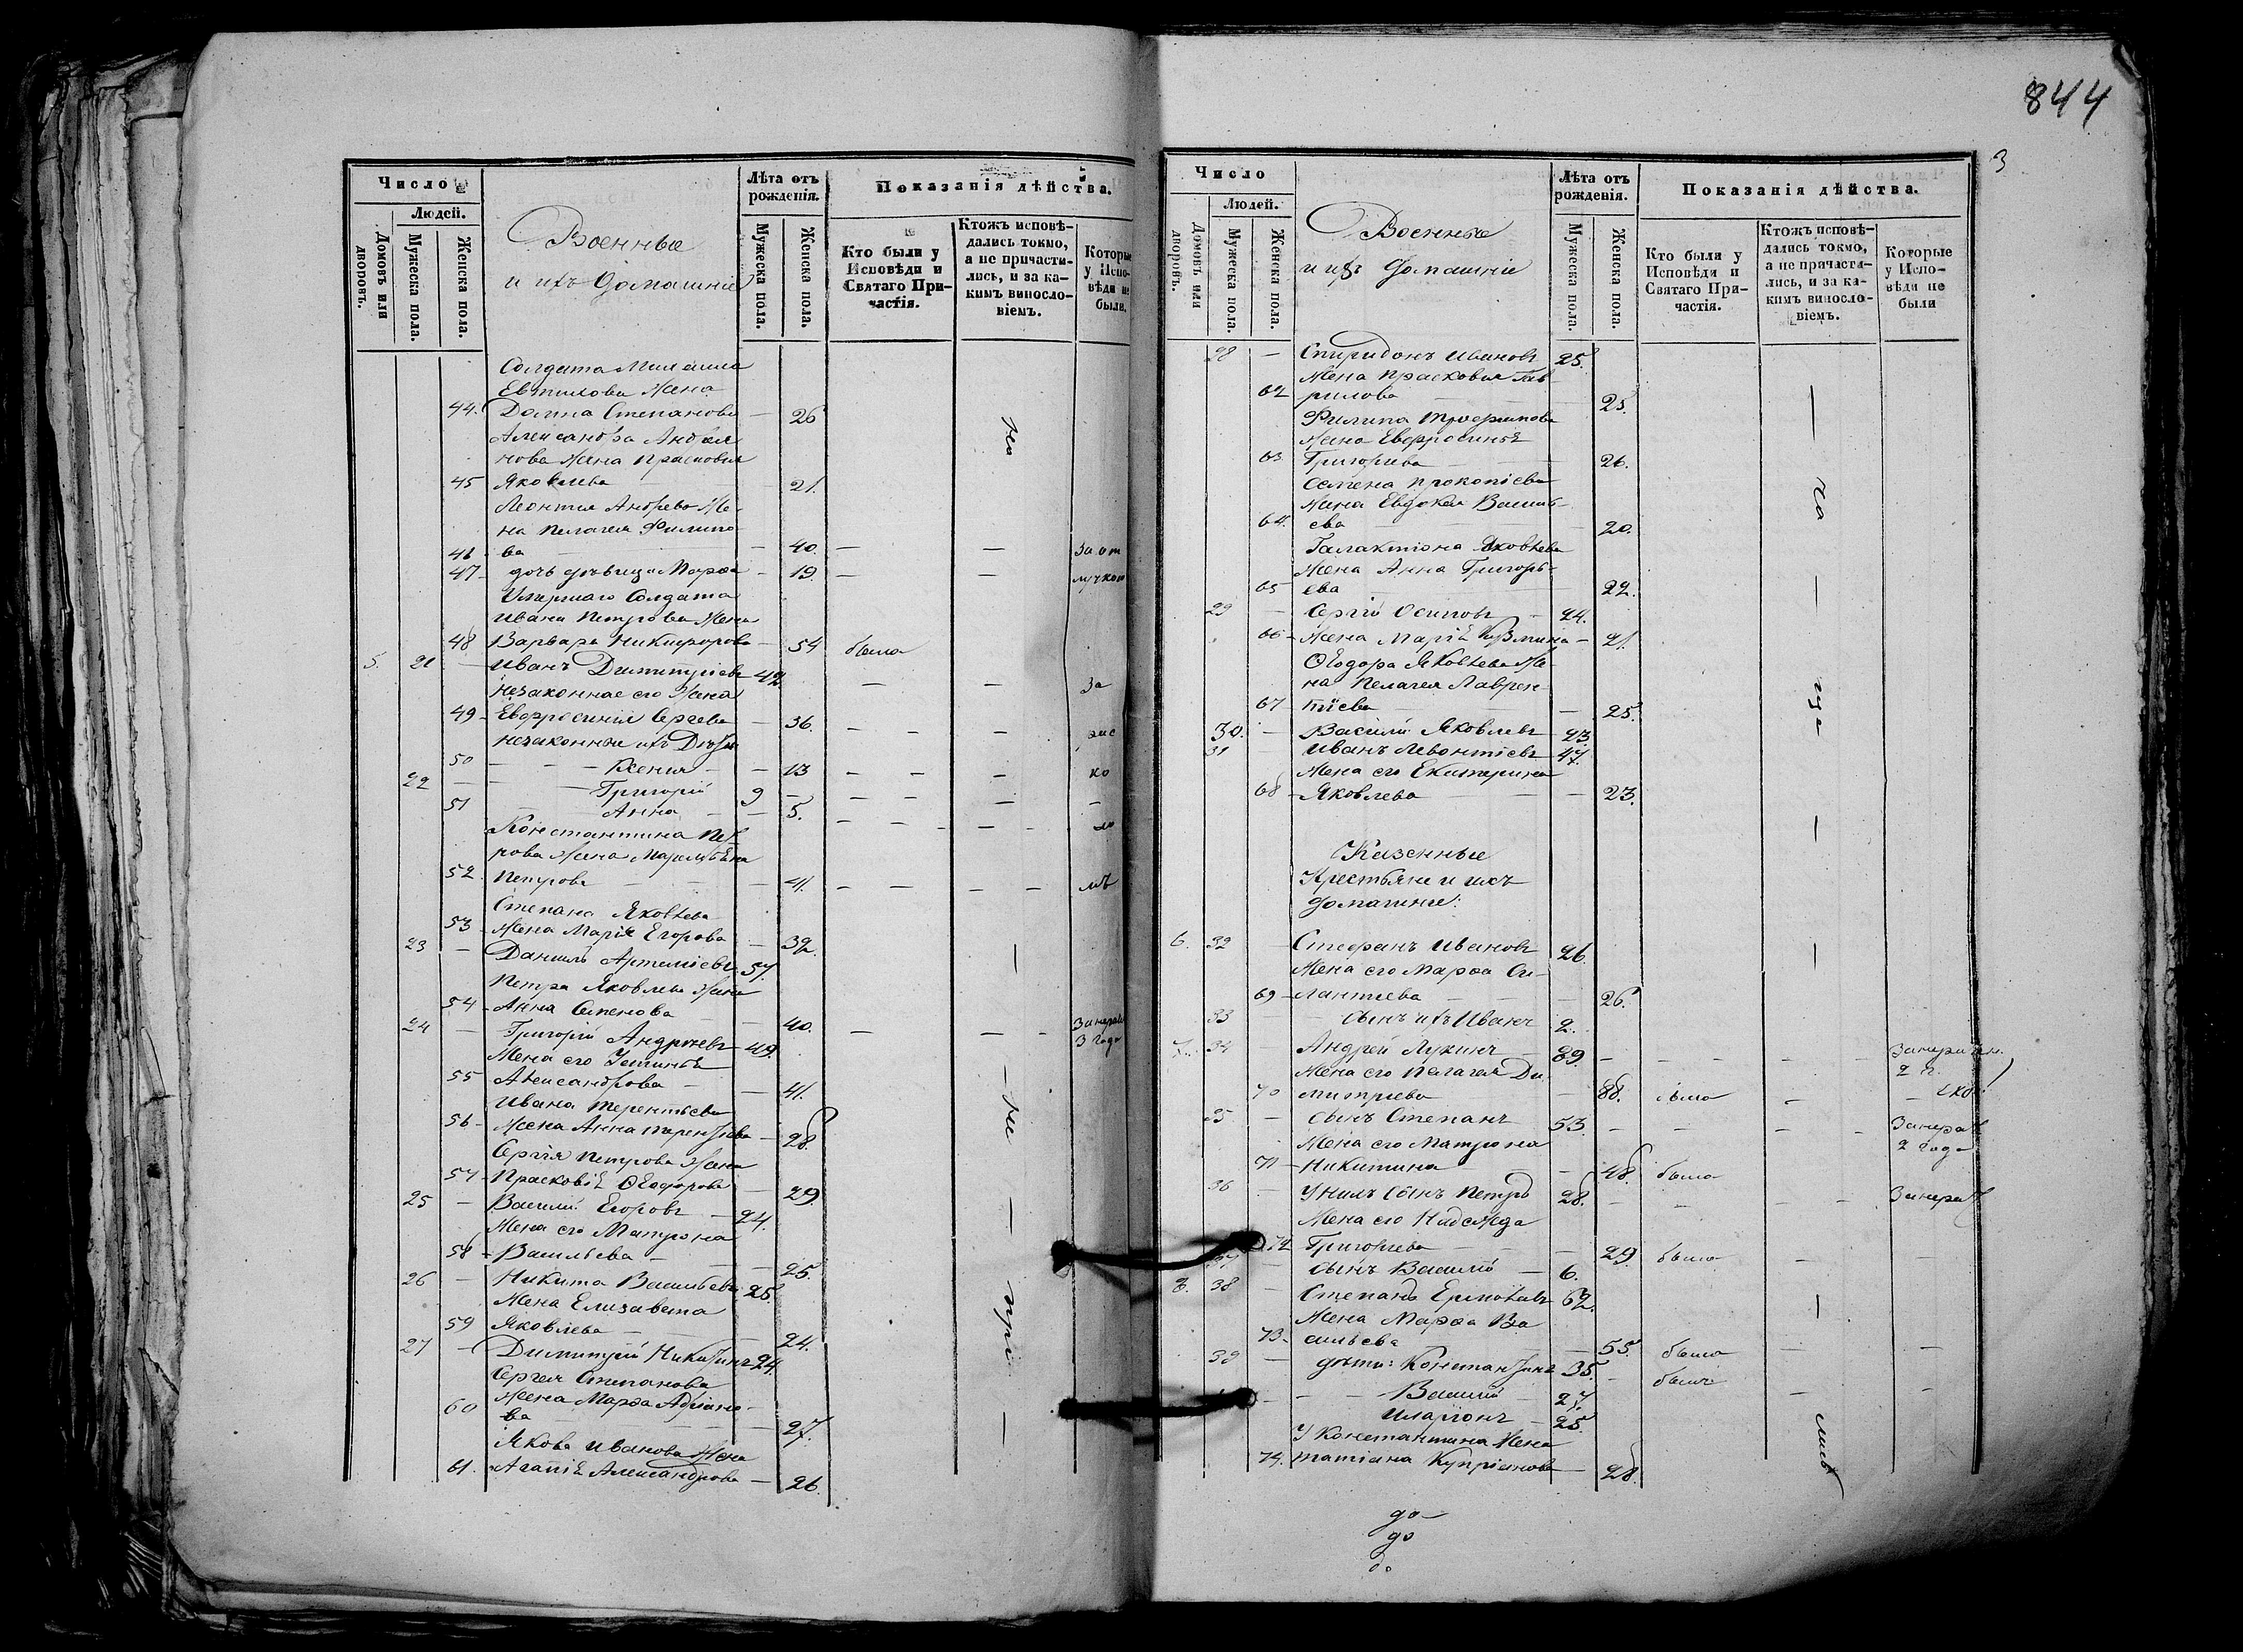 Число
Людей.
Домовъ или дворовъ.
Мужеска пола.
Женска пола.
Военные
и ихъ домашніе
Лѣта отъ рожденія.
Мужеска пола.
Женска пола.
Показанія дѣйства.
Кто были у Исповѣди и Святаго Причастія.
Ктожъ исповѣдались токмо, а не причастились, и за какимъ винословіемъ.
Которые у Исповѣди не были.
Солдата
Жена
44. Домна Степанова — 26
Александра
нова Жена Прасковья
45 Яковлева 21.
Леонтія Андреева Же-
на Пелагея Филипо-
46 ва — 40. — — За от
47 дочь дѣвица Марѳа — 19. — — лучкою
Умершаго Солдата
Ивана Петрова Жена
48 Варвара Никифорова — 54 была
5. 21 — Иванъ Димитріевъ 42. — — За
незаконная его Жена
49 — Евфросинія Сергеева — 36. — — —
незаконные ихъ Дѣти
50 — — — Ксенія — — 13 — — — ко
22 — — Григорій 9 — — — — —
51 — Анна — — 5. — — — — —
Константина Пет
рова Жена
52 Петрова — — — 41. — — — — мъ
Степана Яковлева
53 — Жена Марія Егорова — 32.
23 — Даніилъ Артеміевъ 57.
Петра Яковлева Жена
54 — Анна Семенова — 40. — — — Занерад
24 — Григорій Андреевъ 49. 3 года
Жена его Устинья
55 Александрова — — 41.
Ивана Терентьева
56 — Жена Анна Терентіева — 28.
Сергія Петрова Жена
57 — Прасковія Ѳеодорова — 29.
25 — Василій Егоровъ — 24.
Жена его Матрона
58 — Васильева — — 25.
26 — Никита Васильевъ 25.
Жена Елизавета
59 Яковлева — — 24.
27 — Димитрій Никитинъ 24.
Сергея Степанова
60 Жена Марѳа Адріано-
ва — 27.
Якова Иванова Жена
61. Агапія Александрова — 26.
не — при —
844
3
Число
Людей.
Домовъ или дворовъ.
Мужеска пола.
Женска пола.
Военные
и ихъ домашніе
Лѣта отъ рожденія.
Мужеска пола.
Женска пола.
Показанія дѣйства.
Кто были у Исповѣди и Святаго Причастія.
Ктожъ исповѣдались токмо, а не причастились, и за какимъ винословіемъ.
Которые у Исповѣди не были
28 — Спиридонъ Ивановъ 25.
Жена Прасковья Гав-
62 рилова — 25.
Филипа Трофимова
Жена Евфросинья
63 Григорьева — 26.
Семена Прокопіева
Жена Евдокея Василь-
64. ева — — 20.
Галактіона Яковлева
Жена Анна Григорь-
65 ева — 22.
29 — Сергій Осиповъ — 24.
66 — Жена Марія Кузмина — 21.
Ѳеодора Яковлева Же-
на Пелагея Лаврен-
67 — тіева — — 25.
30. — Василій Яковлевъ 23
31 Иванъ Левонтіевъ 47.
Жена его Екатерина
68 — Яковлева — — 23.
Казенные
Крестьяне и ихъ
домашніе:
6. 32 — Стефанъ Ивановъ 26.
Жена его Марѳа Си-
69 — лантиева — — 26.
33 — сынъ ихъ Иванъ 2.
7. 34 — Андрей Лукинъ — 89. — — — —
Жена его Пелагея Ди-
70 митріева — 88. была — —
35 — сынъ Степанъ 53. — — — — Занерад
Жена его Матрона 2 года
71 — Никитина — — 48. была
36 — У нихъ сынъ Петръ 28. — — — — Занерад
Жена его Надежда
72 Григорьева — — 29. была — —
37 — сынъ Василій — 6.
8. 38 — Степанъ Ермолаевъ 62.
Жена Марѳа Ва
73 — сильева — 55. была — —
39 — дѣти: Константинъ 35. — былъ — —
— — Василій — 27.
Иларіонъ — 25.
У Константина Жена
74. Татіана Купріанова — 28.
— ча — ща — лись
до
до
до